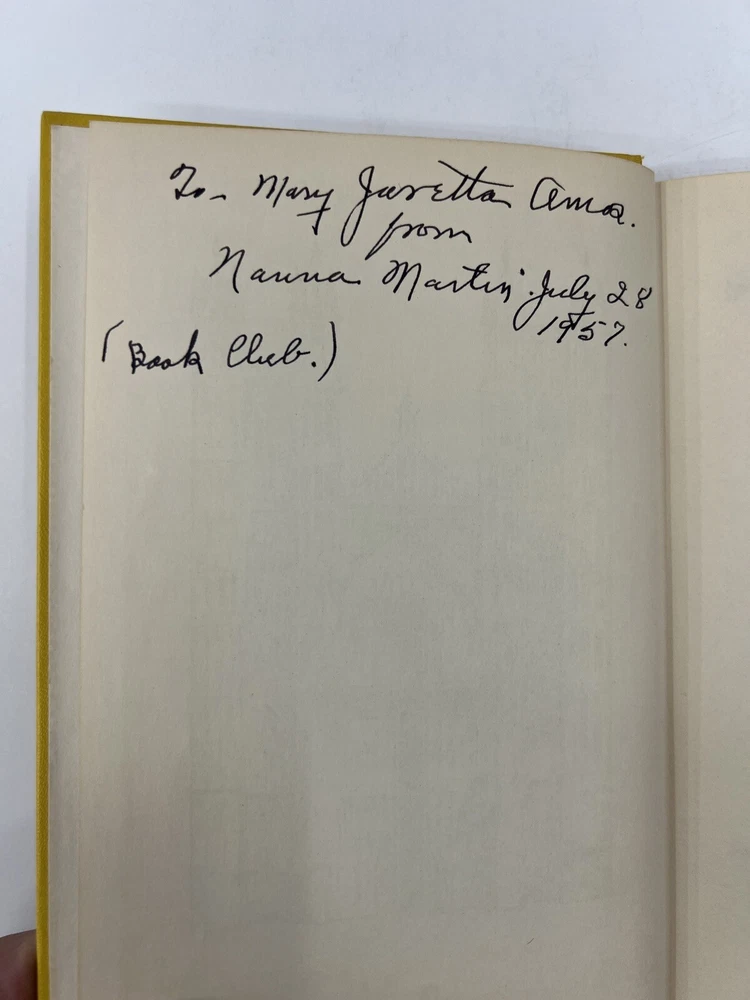 To - Mary Javetta Amos.
from
Nanna Martin. July 28
1957.
(Book Club.)